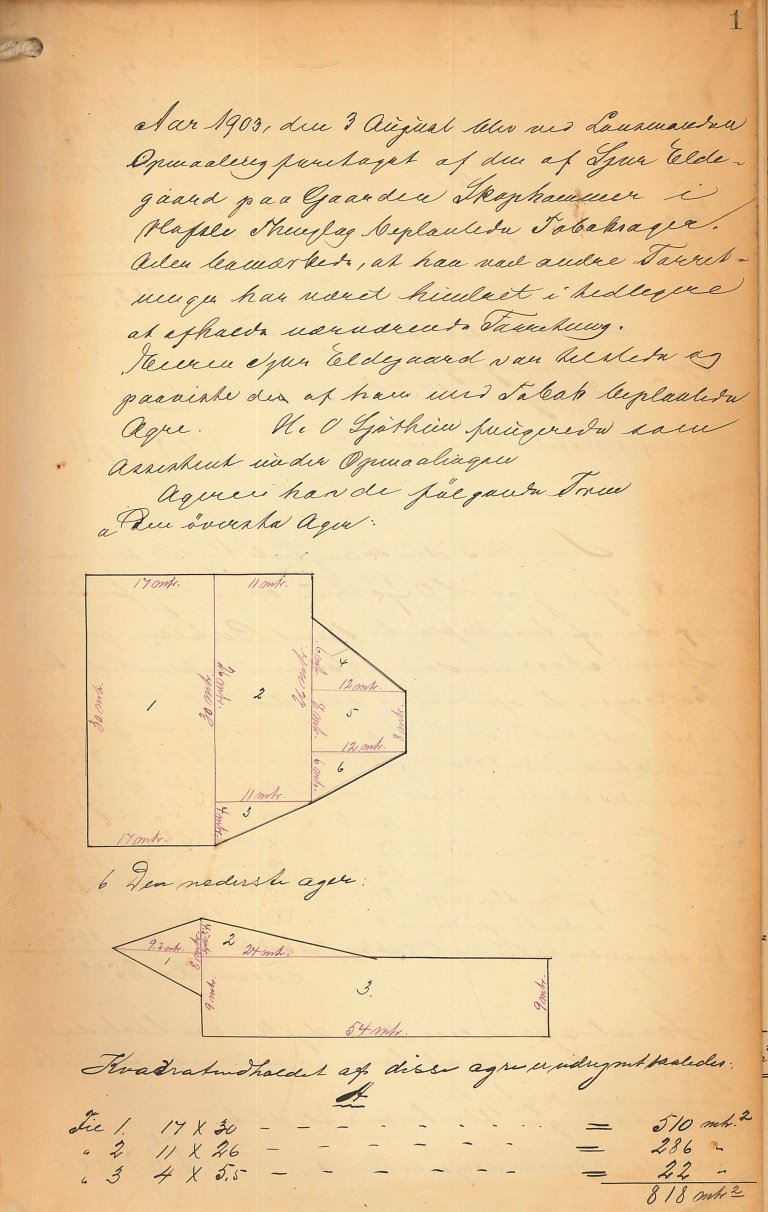 1
Aar 1903, den 3 August blev ved Lensmanden
Opmaaling foretaget af den af Sjur Elde-
gaard paa Gaarden Skophammer i
Hafslo Thinglag beplantede Tobaksager.
Den bemærkede, at han ved andre Forret-
ninger har været hindret i tidligere
at afholde nærværende Forretning.
Eieren Sjur Eldegaard var tilstede og
paaviste de af ham med Tobak beplantede
Agre. H. O Sjøthun fungerede som
Assistent under Opmaalingen
Ageren havde følgende Form
a Den överste Ager:
17 mtr. 11 mtr.
30 mtr. 1 30 mtr. 26 mtr. 2 22 mtr. 6 mtr. 4
12 mtr.
8 mtr. 5 8 mtr.
12 mtr.
6 mtr. 6
11 mtr.
17 mtr. 4 mtr. 3
b Den nederste ager:
9.2 mtr. 1 8 mtr. 4.5 mtr. 2 24 mtr.
9 mtr. 3. 9 mtr.
54 mtr.
Kvadratindholdet af disse agre er udregnet saaledes:
A
Fic 1. 17 X 30 - - - - - - = 510 mtr.2
" 2 11 X 26 - - - - - - = 286 "
" 3 4 X 5.5 - - - - - - = 22 "
818 mtr2